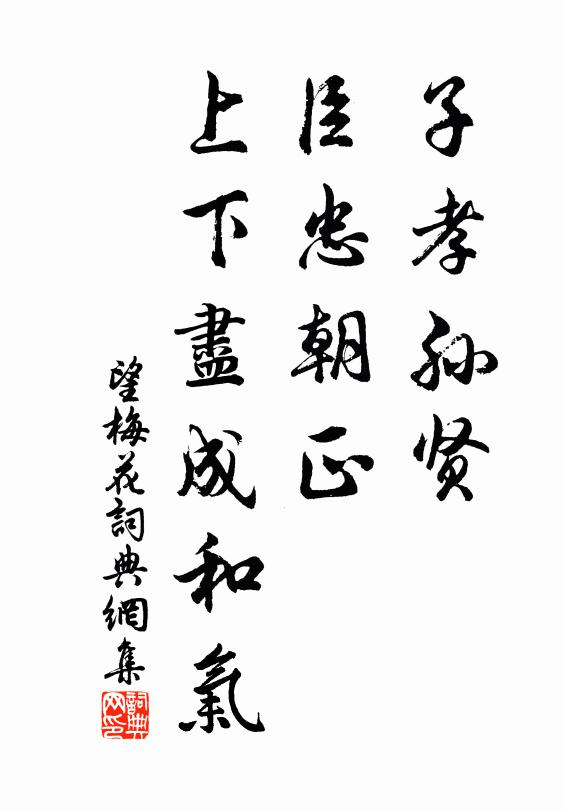 子孝孙贤
臣忠朝正
上下盡成和氣
望梅花詞典網集
詞典网印